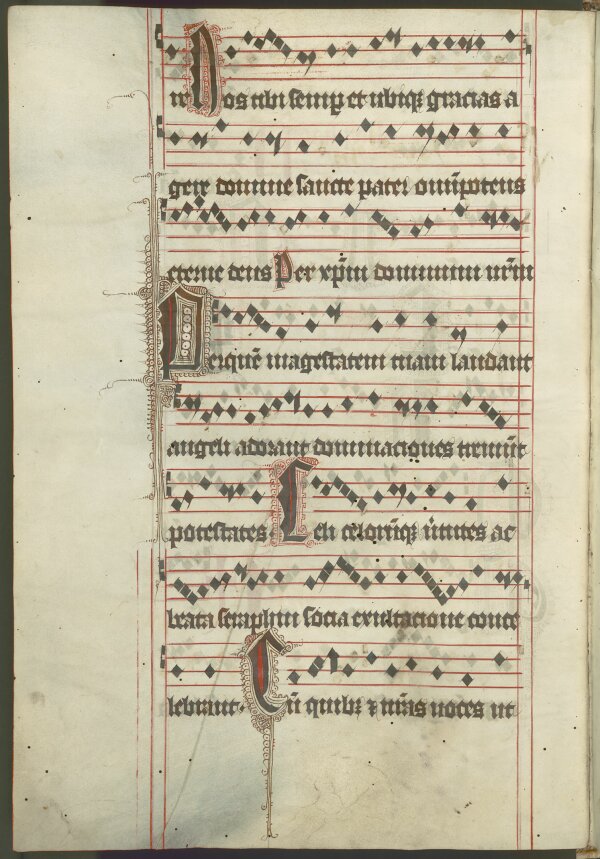 re Nos tibi semp et ubiqꝫ gracias a
gere domine sancte pater om̄ipotens
eterne deus Per xp̄m dominum nr̄m
Per quē magestatem tuam laudant
angeli adorant dominaciones tremūt
potestates Celi celorūqꝫ ūtutes ac
beata seraphin socia exultacione conce
lebrant. Cū quibꝫ ⁊ nr̄as uoces ut